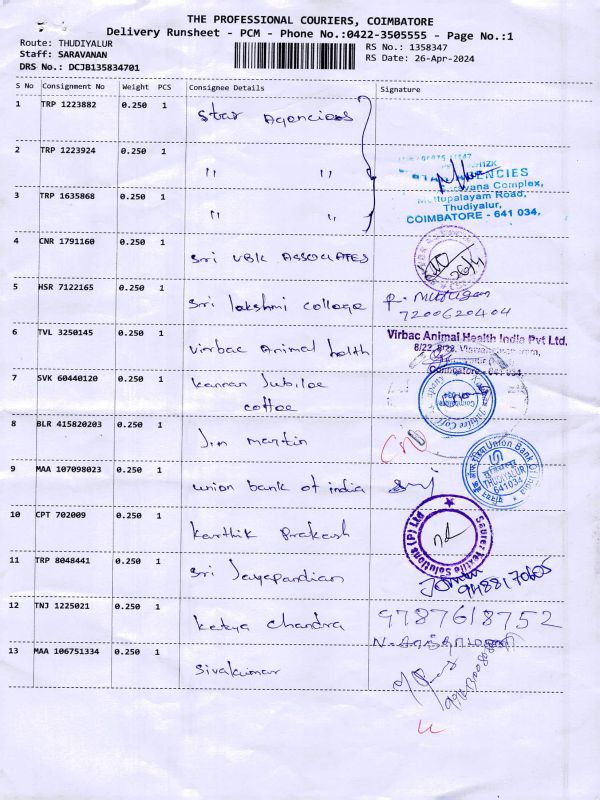 THE PROFESSIONAL COURIERS, COIMBATORE
Delivery Runsheet - PCM - Phone No.:0422-3505555 - Page No.:1
Route: THUDIYALUR
Staff: SARAVANAN
DRS No.: DCJB135834701
RS No.: 1358347
RS Date: 26-Apr-2024
S No Consignment No Weight PCS Consignee Details Signature
1 TRP 1223882 0.250 1 Star Agencies
2 TRP 1223924 0.250 1 " "
3 TRP 1635868 0.250 1 " "
Complex,
Mettupalayam Road,
Thudiyalur,
COIMBATORE - 641 034.
4 CNR 1791160 0.250 1 Sri VBK ASSOCIATES
26/4
5 HSR 7122165 0.250 1 Sri lakshmi college P. Murugan
7200620404
6 TVL 3250145 0.250 1 virbac Animal helth
Virbac Animal Health India Pvt Ltd.
Coimbatore - 641 034.
7 SVK 60440120 0.250 1 kannan Jubilee
coffee
8 BLR 415820203 0.250 1 Jim martin
9 MAA 107098023 0.250 1 union bank of india
Union Bank Of India
THUDIYALUR
641034
10 CPT 702009 0.250 1 karthik Prakash
Saurer Textile Solutions (P) Ltd
11 TRP 8048441 0.250 1 Sri Jayapandian
9488170605
12 TNJ 1225021 0.250 1 Ketya Chandra 9787618752
13 MAA 106751334 0.250 1 Sivakumar